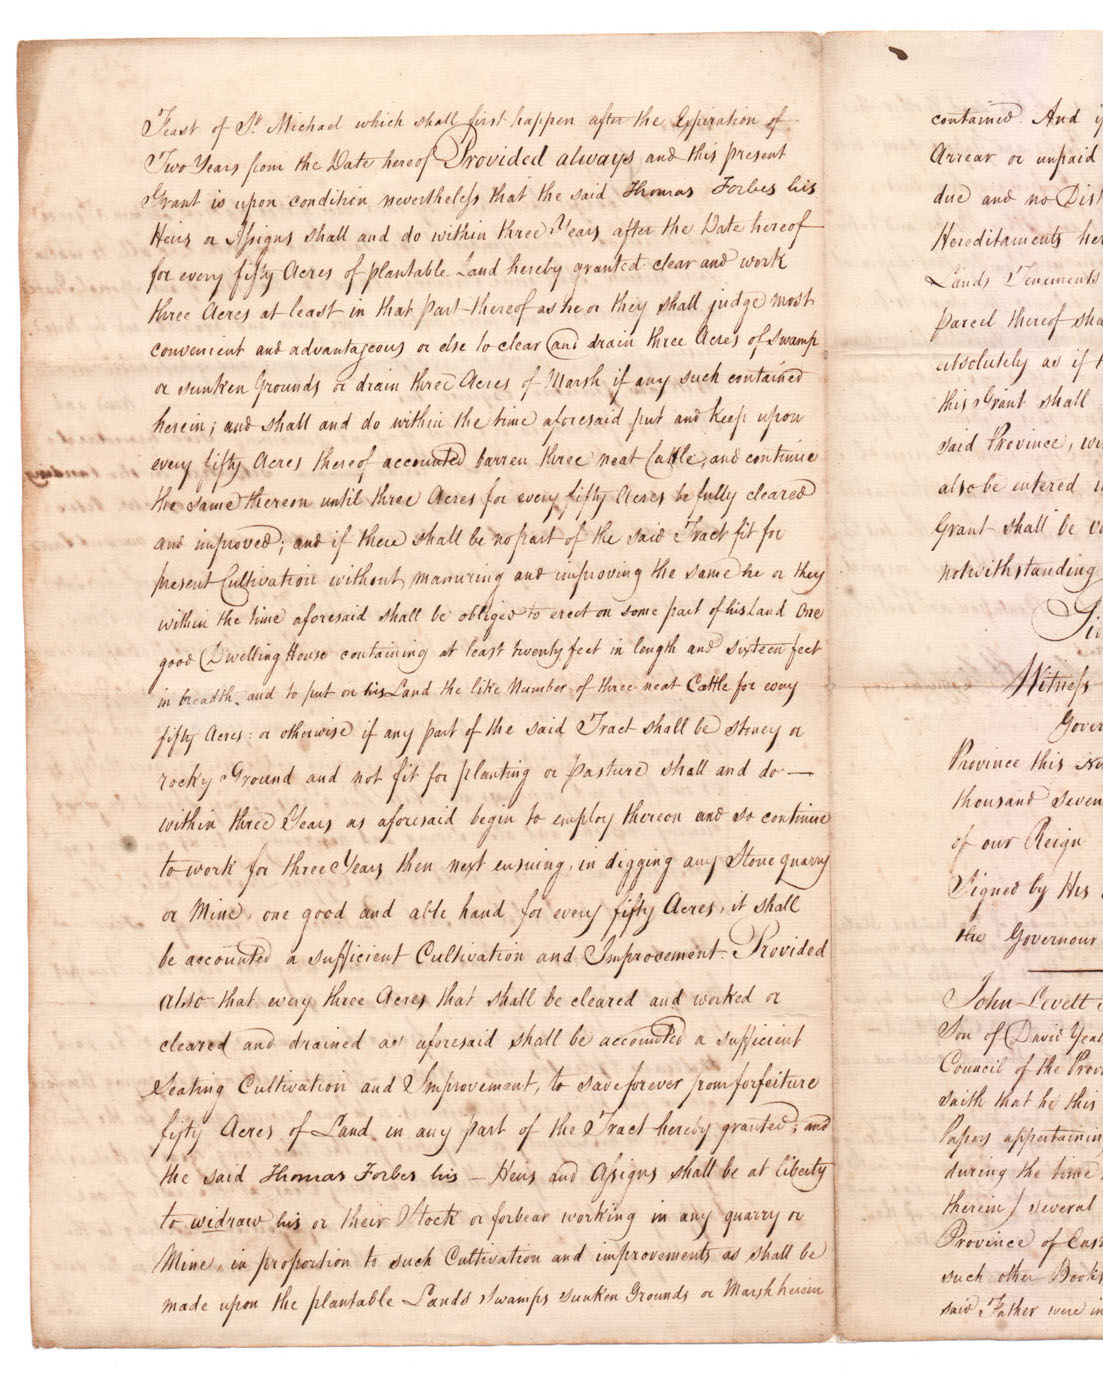 Feast of St. Michael which shall first happen after the Expiration of
Two Years from the Date hereof Provided always and this present
Grant is upon condition nevertheless that the said Thomas Forbes his
Heirs or Assigns shall and do within three Years after the Date hereof
for every fifty Acres of plantable Land hereby granted clear and work
three Acres at least in that part thereof as he or they shall judge most
convenient and advantageous or else to clear and drain three Acres of Swamp
or sunken Grounds or drain three Acres of Marsh if any such contained
herein; and shall and do within the time aforesaid put and keep upon
every fifty Acres thereof accounted barren three neat Cattle, and continue
the same thereon until three Acres for every fifty Acres be fully cleared
and improved; and if there shall be no part of the said Tract fit for
present Cultivation without manuring and improving the same he or they
within the time aforesaid shall be obliged to erect on some part of his Land One
good Dwelling House containing at least twenty feet in length and sixteen feet
in breadth, and to put on his Land the like Number of three neat Cattle for every
fifty Acres: or otherwise if any part of the said Tract shall be stoney or
rocky Ground and not fit for planting or pasture shall and do —
within three Years as aforesaid begin to employ thereon and so continue
to work for three Years then next ensuing, in digging any Stone quarry
or Mine, one good and able hand for every fifty Acres, it shall
be accounted a sufficient Cultivation and Improvement. Provided
also that every three Acres that shall be cleared and worked or
cleared and drained as aforesaid shall be accounted a sufficient
Seating Cultivation and Improvement, to save forever from forfeiture
fifty Acres of Land in any part of the Tract hereby granted; and
the said Thomas Forbes his — Heirs and Assigns shall be at liberty
to widraw his or their Stock or forbear working in any quarry or
Mine, in proportion to such Cultivation and improvements as shall be
made upon the plantable Lands Swamps sunken Grounds or Marsh herein
contained. And
Arrear or unpaid
due and no
Hereditaments
Lands Tenements
parcel thereof
absolutely as if
this Grant shall
said Province,
also be entered
Grant shall be
notwithstanding
Witness
Province this
thousand seven
of our Reign
Signed by His
the Governour
John Levett
Son of David
Council of the
saith that he this
Papers
during the time
therein) several
Province of
such other Books
said Father were